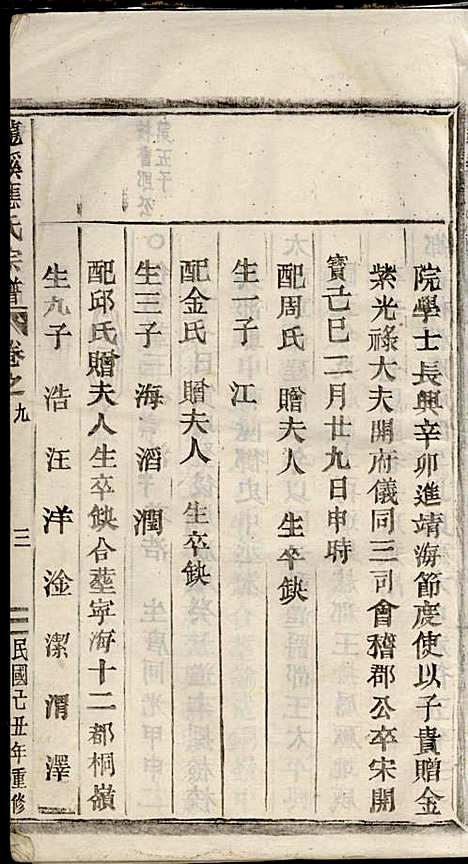 院學士長興辛卯進靖海節度使以子貴贈金
紫光祿大夫開府儀同三司會稽郡公卒宋開
寶己巳二月廿九日申時
配周氏贈夫人 生卒鈌
生一子 江
配金氏贈夫人 生卒鈌
生三子 海 滔 潤
配邱氏贈夫人生卒鈌合塟寧海十二都桐嶺
生九子 浩 汪 洋 淦 潔 渭 澤
溪 氏宗譜 卷之九 三 民國己丑年重修